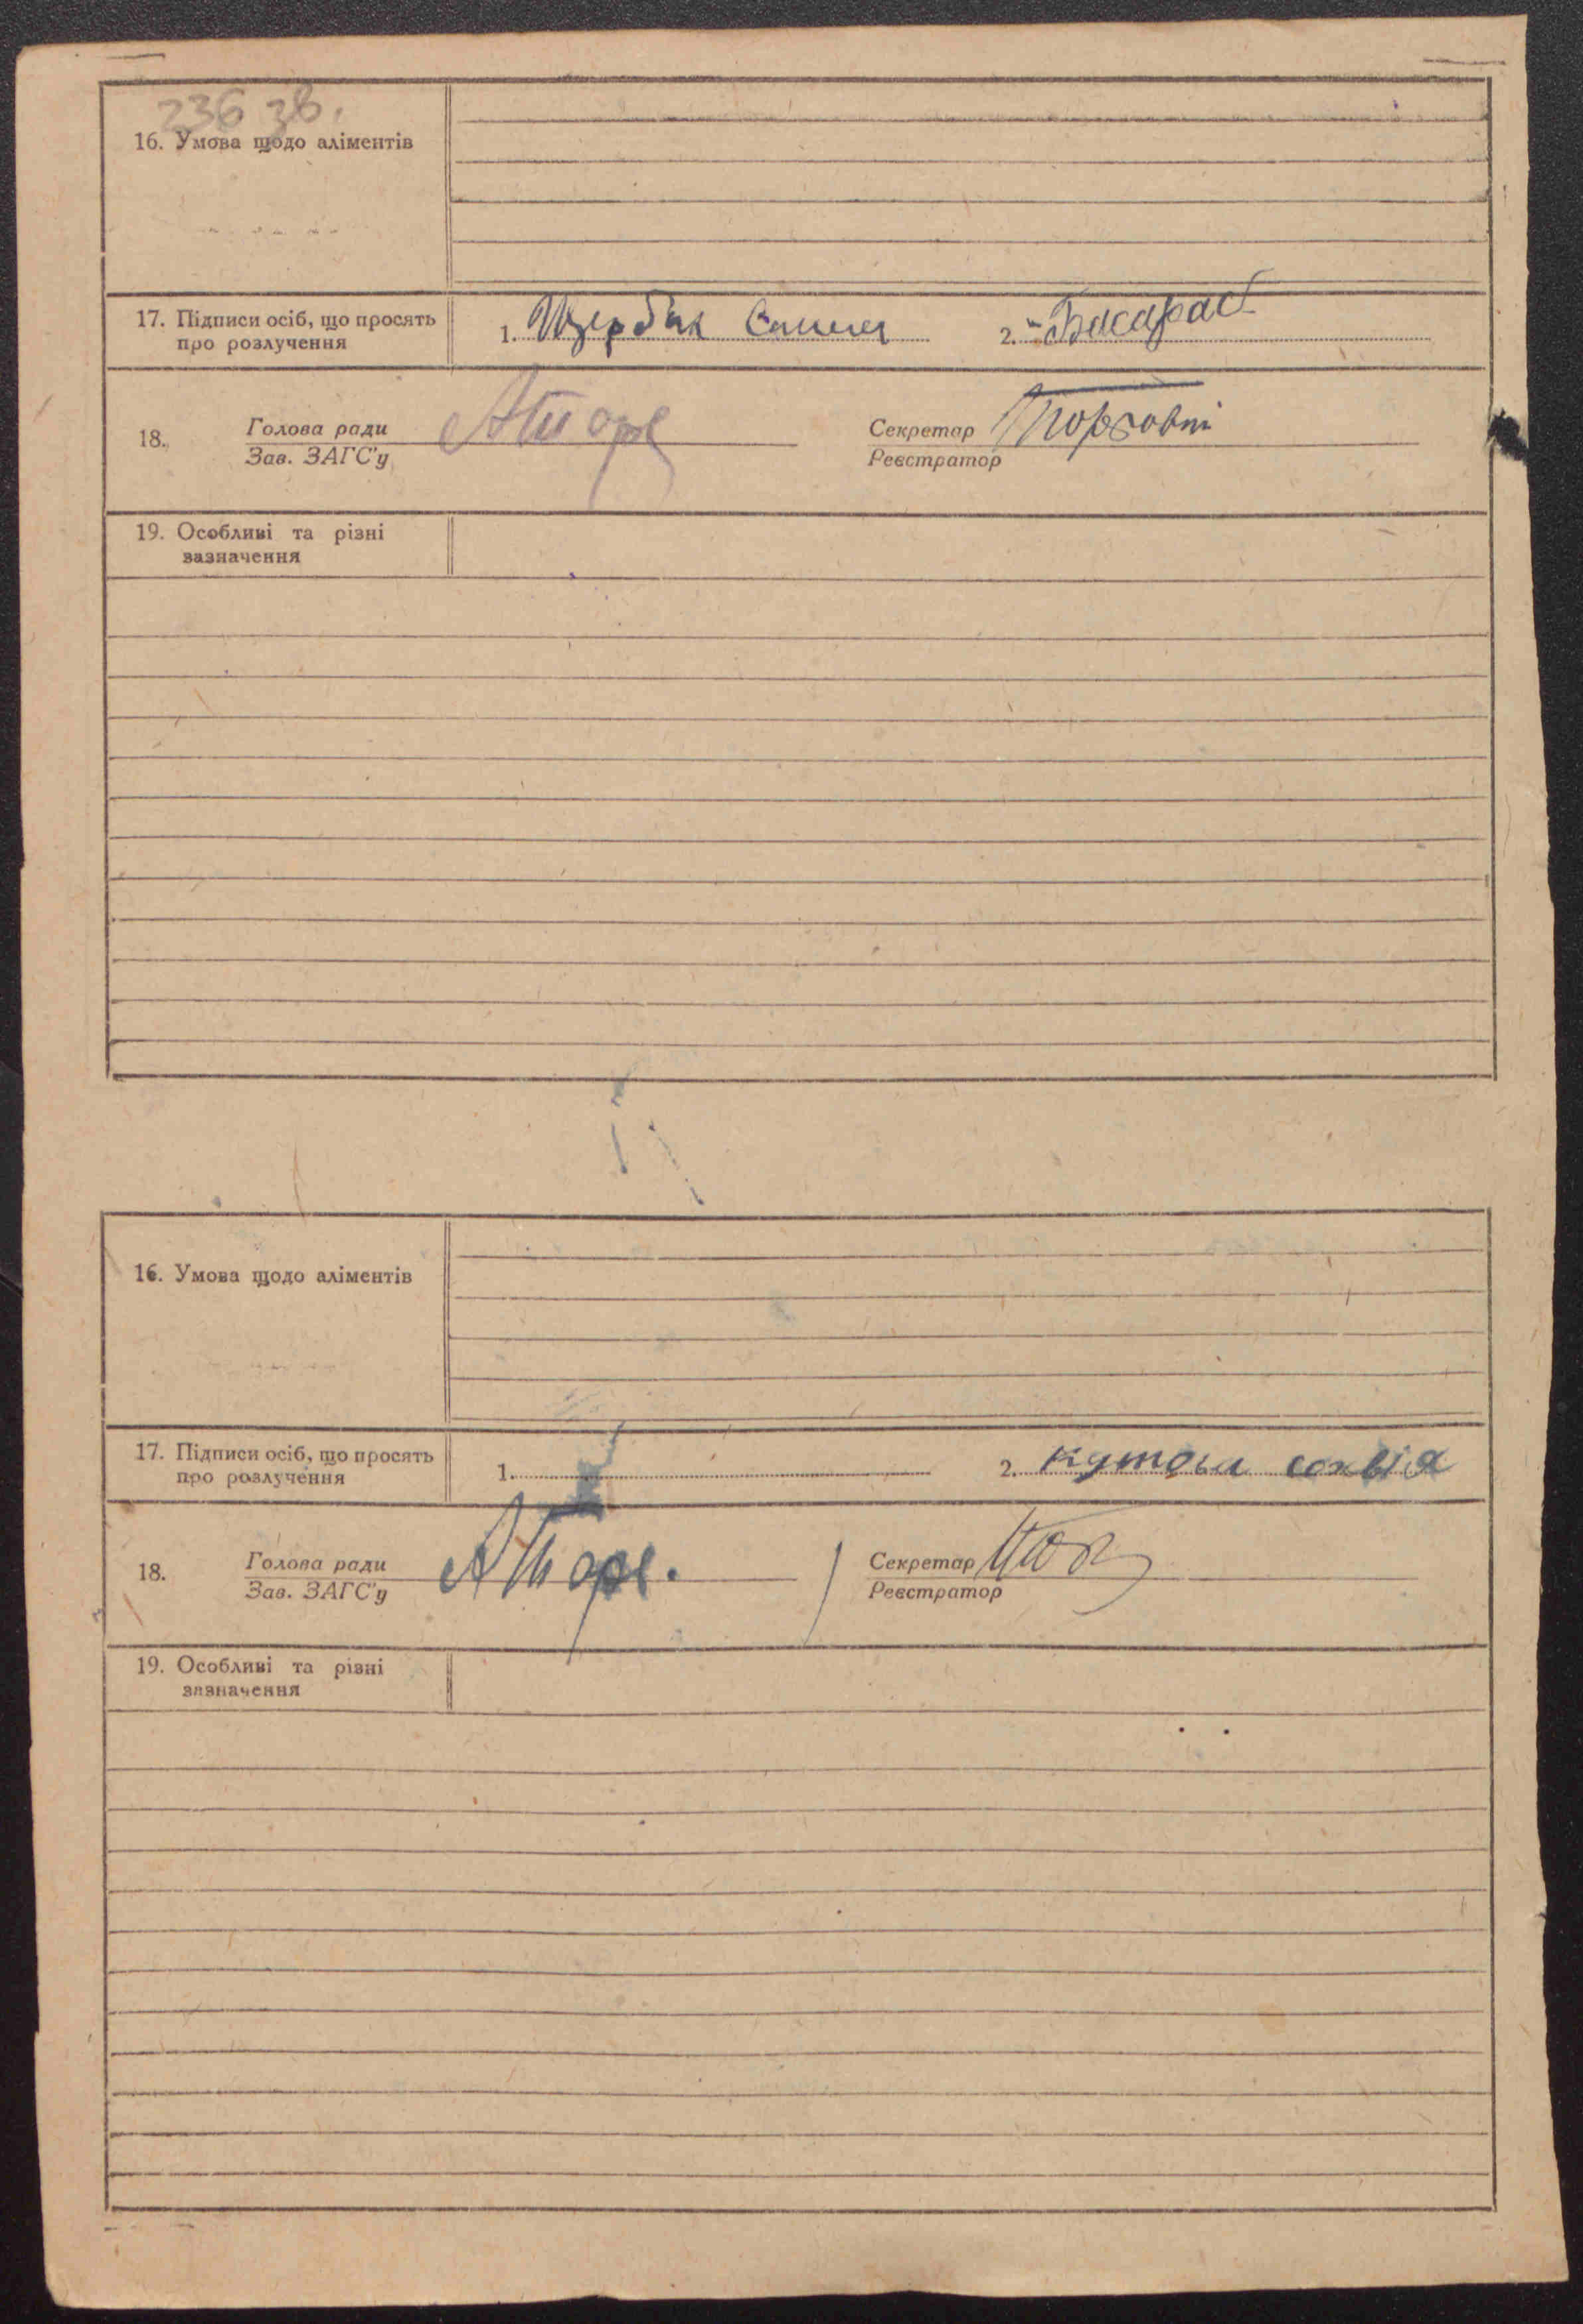 236 зв.
16. Умова щодо аліментів
17. Підписи осіб, що просять
про розлучення
1. Щербак
2.
18.
Голова ради
Зав. ЗАГС'у
Секретар
Реєстратор
19. Особливі та різні
зазначення
16. Умова щодо аліментів
17. Підписи осіб, що просять
про розлучення
1.
2. кутова
18.
Голова ради
Зав. ЗАГС'у
Секретар
Реєстратор
19. Особливі та різні
зазначення